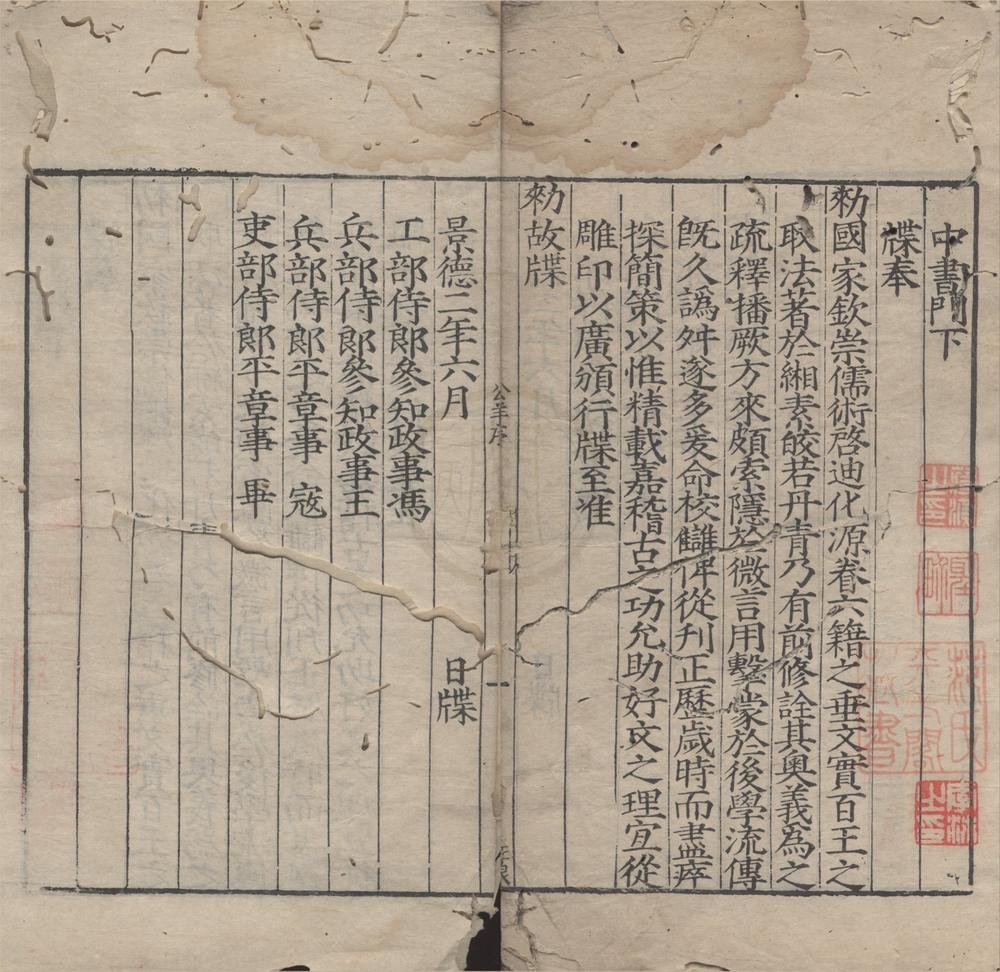 中書門下
牒奉
勑國家欽崇儒術啓迪化源眷六籍之垂文實百王之
取法著於緗素皎若丹青乃有前修詮其奧義為之
疏釋播厥方來頗索隱於微言用擊蒙於後學流傳
旣久譌舛遂多爰命校讎俾從刋正歷歲時而盡瘁
探簡策以惟精載嘉稽古之功允助好文之理宜從
雕印以廣頒行牒至准
勑故牒
公羊序
一
景德二年六月 日牒
工部侍郎參知政事馮
兵部侍郎參知政事王
兵部侍郎平章事 寇
吏部侍郎平章事 畢